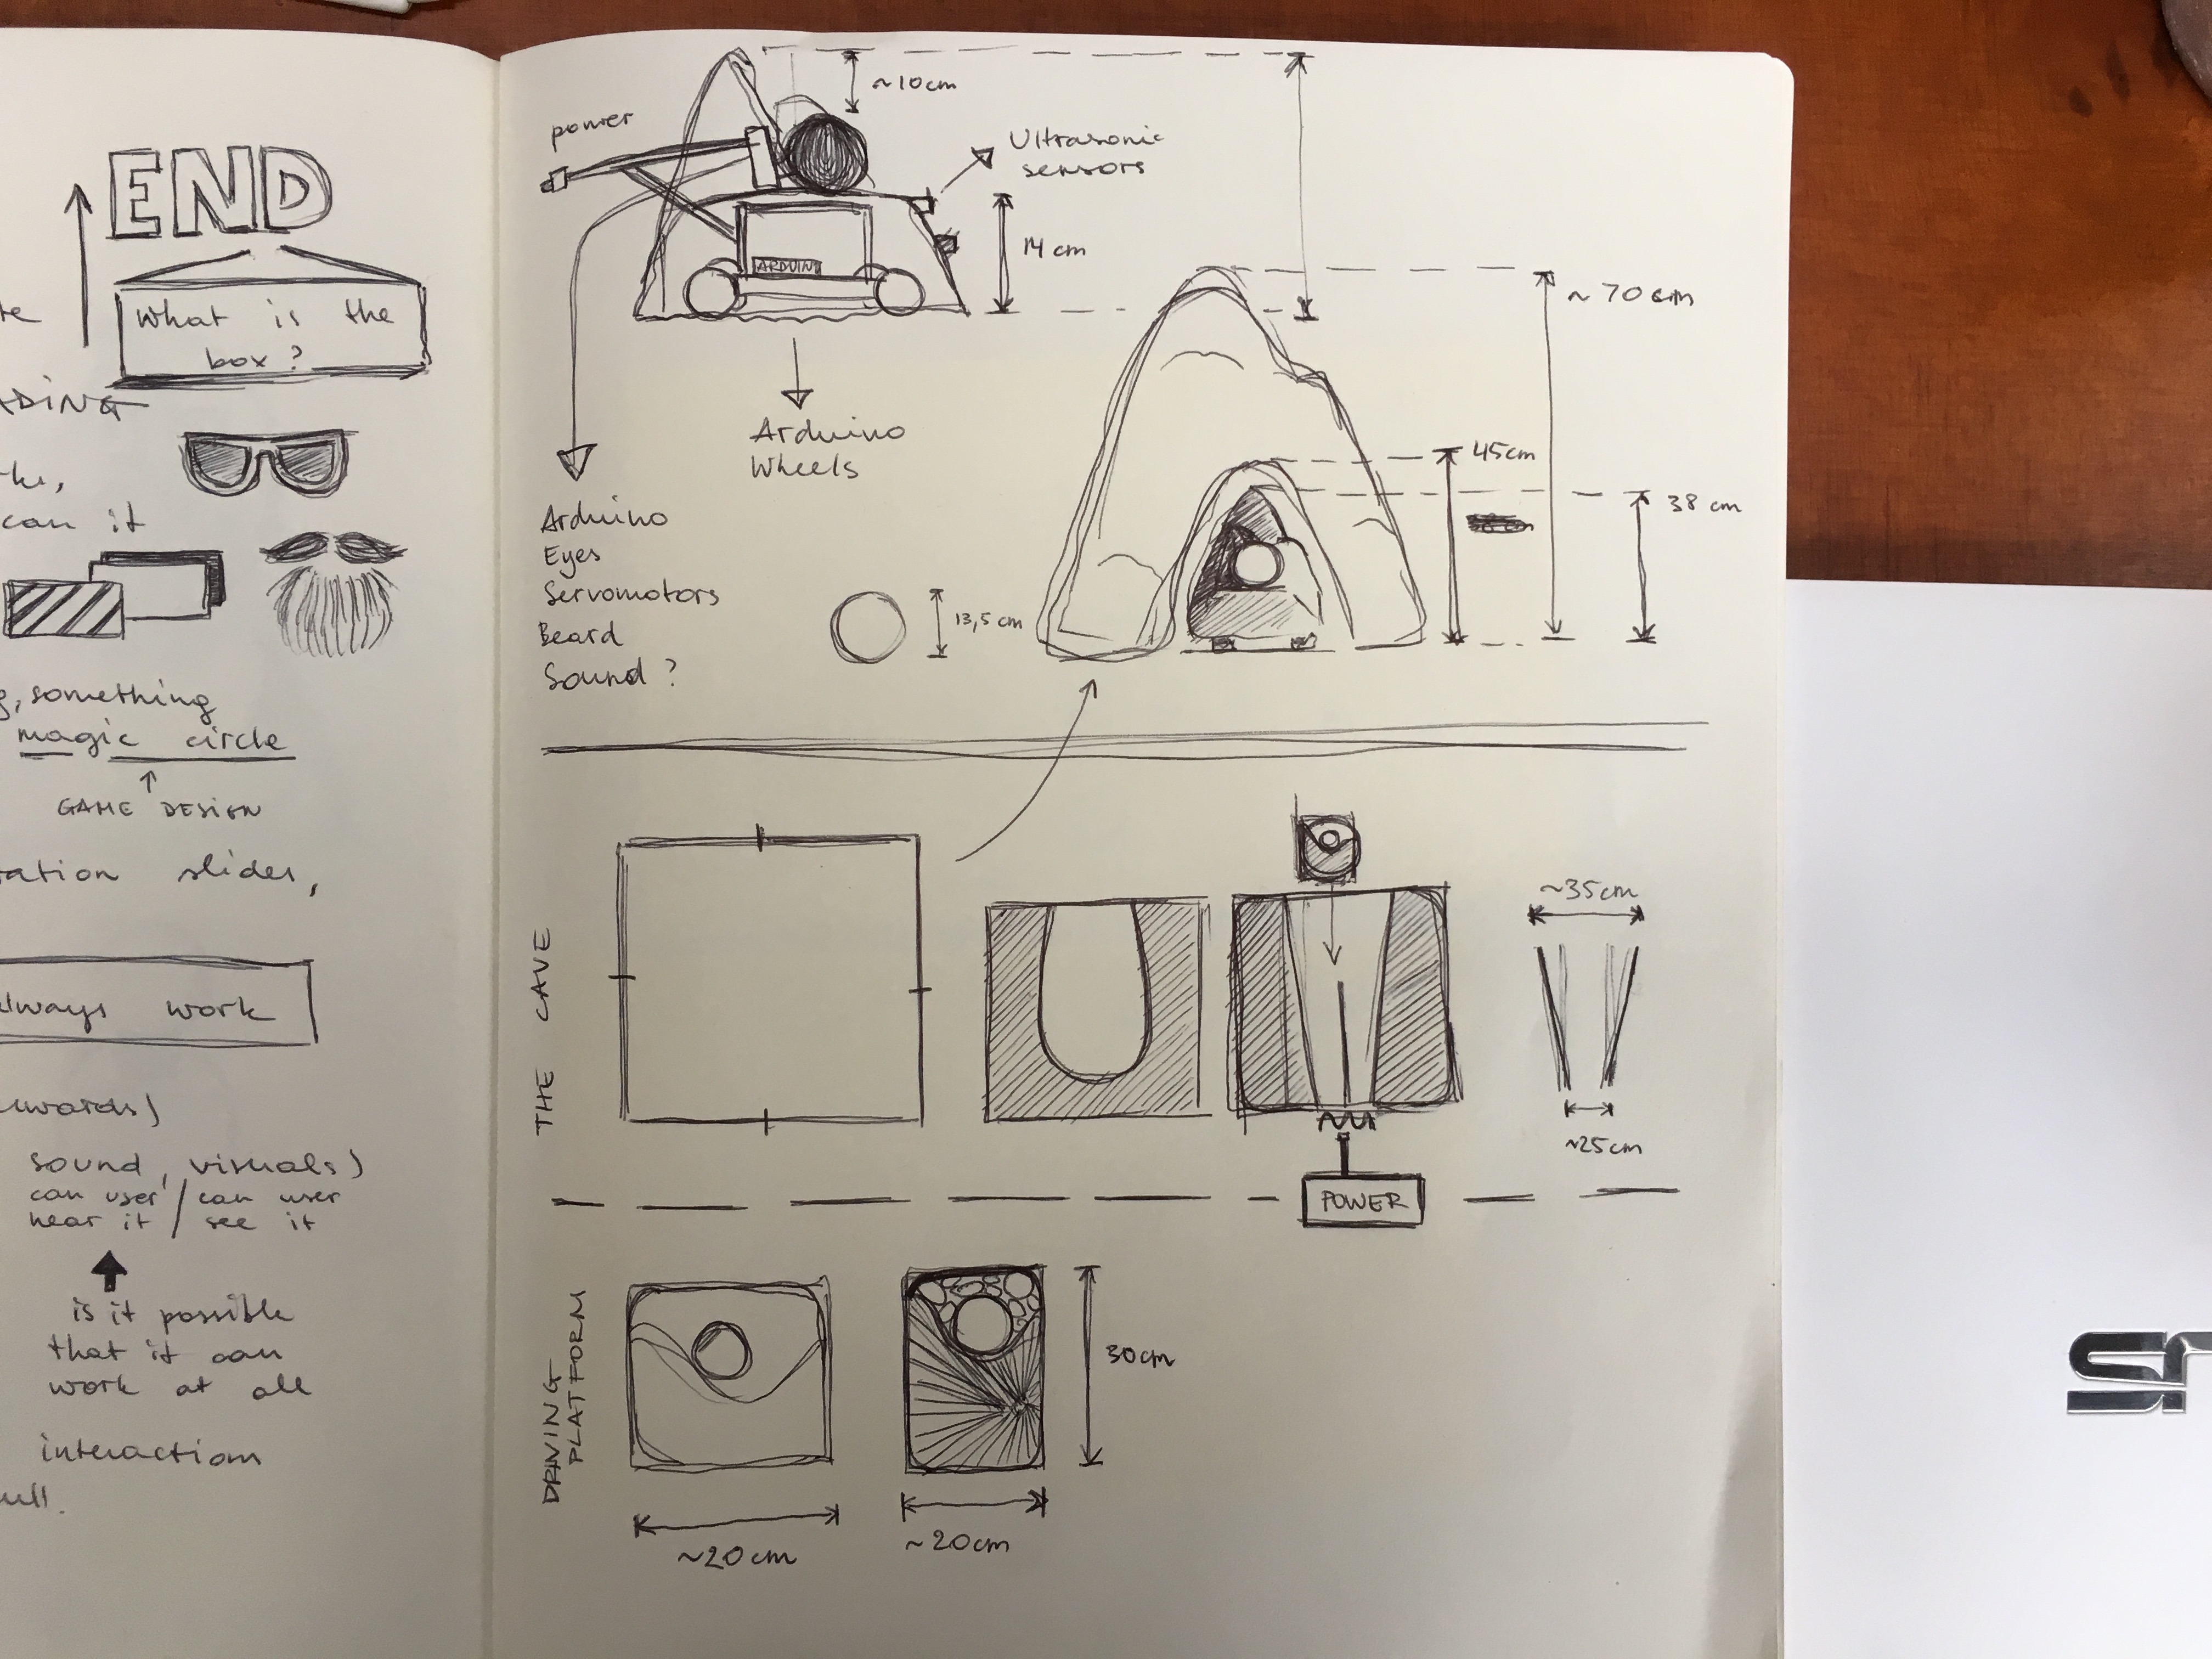 END
What is the
box?
can it
something
magic circle
GAME DESIGN
slides,
always work
sound, visuals)
can user / can user
hear it / see it
is it possible
that it can
work at all
interaction
power
~10cm
Ultrasonic
sensors
14 cm
ARDUINO
Arduino
Wheels
Arduino
Eyes
Servomotors
Beard
Sound ?
13,5 cm
~ 70 cm
45cm
38 cm
THE CAVE
~35cm
~25cm
POWER
DRIVING
PLATFORM
30cm
~20cm
~20cm